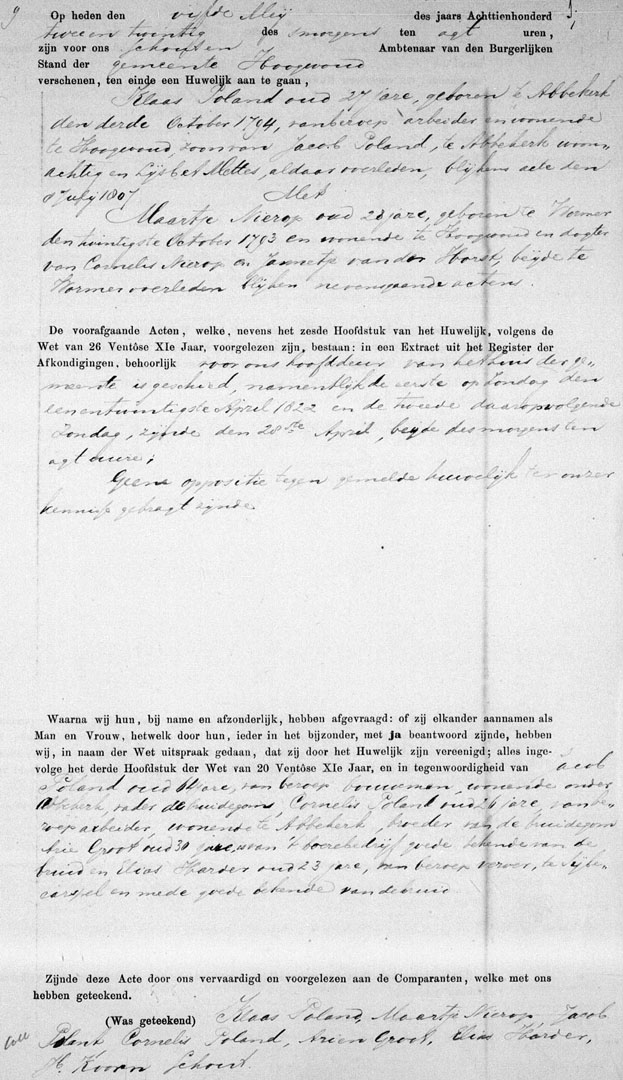 9 Op heden den vijfde Meij des jaars Achttienhonderd 5;
twee en twintig des smorgens ten agt uren,
zijn voor ons Schout en Ambtenaar van den Burgerlijken
Stand der gemeente Hoogwoud
verschenen, ten einde een Huwelijk aan te gaan,
Klaas Poland oud 27 jare, geboren te Abbekerk
den derde October 1794, van beroep arbeider en wonende
te Hoogwoud, zoon van Jacob Poland, te Abbekerk woon-
achtig en Lijsbet Mettes, aldaar overleden, blijkens acte den
July 1807
Met
Maartje Nierop oud 28 jare, geboren te Wormer
den twintigste October 1793 en wonende te Hoogwoud en dogter
van Cornelis Nierop en Jannetje van der Horst, beijde te
Wormer overleden blijkens nevensgaande actens.
De voorafgaande Acten, welke, nevens het zesde Hoofdstuk van het Huwelijk, volgens de
Wet van 26 Ventôse XIe Jaar, voorgelezen zijn, bestaan: in een Extract uit het Register der
Afkondigingen, behoorlijk voor ons hoofddeur van het huis der ge-
meente is geschied, namentlijk de eerste op Zondag den
eenentwintigste April 1822 en de tweede daaropvolgende
Zondag, zijnde den 28ste April, beijde des morgens ten
agt uure;
Geene oppositie tegen gemelde huwelijk ter onzer
kennisse gebragt zijnde.
Waarna wij hun, bij name en afzonderlijk, hebben afgevraagd: of zij elkander aannamen als
Man en Vrouw, hetwelk door hun, ieder in het bijzonder, met ja beantwoord zijnde, hebben
wij, in naam der Wet uitspraak gedaan, dat zij door het Huwelijk zijn vereenigd; alles inge-
volge het derde Hoofdstuk der Wet van 20 Ventôse XIe Jaar, en in tegenwoordigheid van Jacob
Poland oud jare, van beroep bouwman, wonende onder
Abbekerk, vader de buidegom, Cornelis Poland oud 26 jare, van be-
roep arbeider, wonende te Abbekerk, broeder van de buidegom
Arie Groot oud 30 jare, van 't boerebedrijf goede bekende van de
bruid en Elias Harder oud 23 jare, van beroep te Sijbe-
carspel en mede goede bekende van de bruid
Zijnde deze Acte door ons vervaardigd en voorgelezen aan de Comparanten, welke met ons
hebben geteekend.
(Was geteekend) Klaas Poland, Maartje Nierop Jacob
Polant Cornelis Poland, Arien Groot, Elias Harder,
H. Koorn Schout.